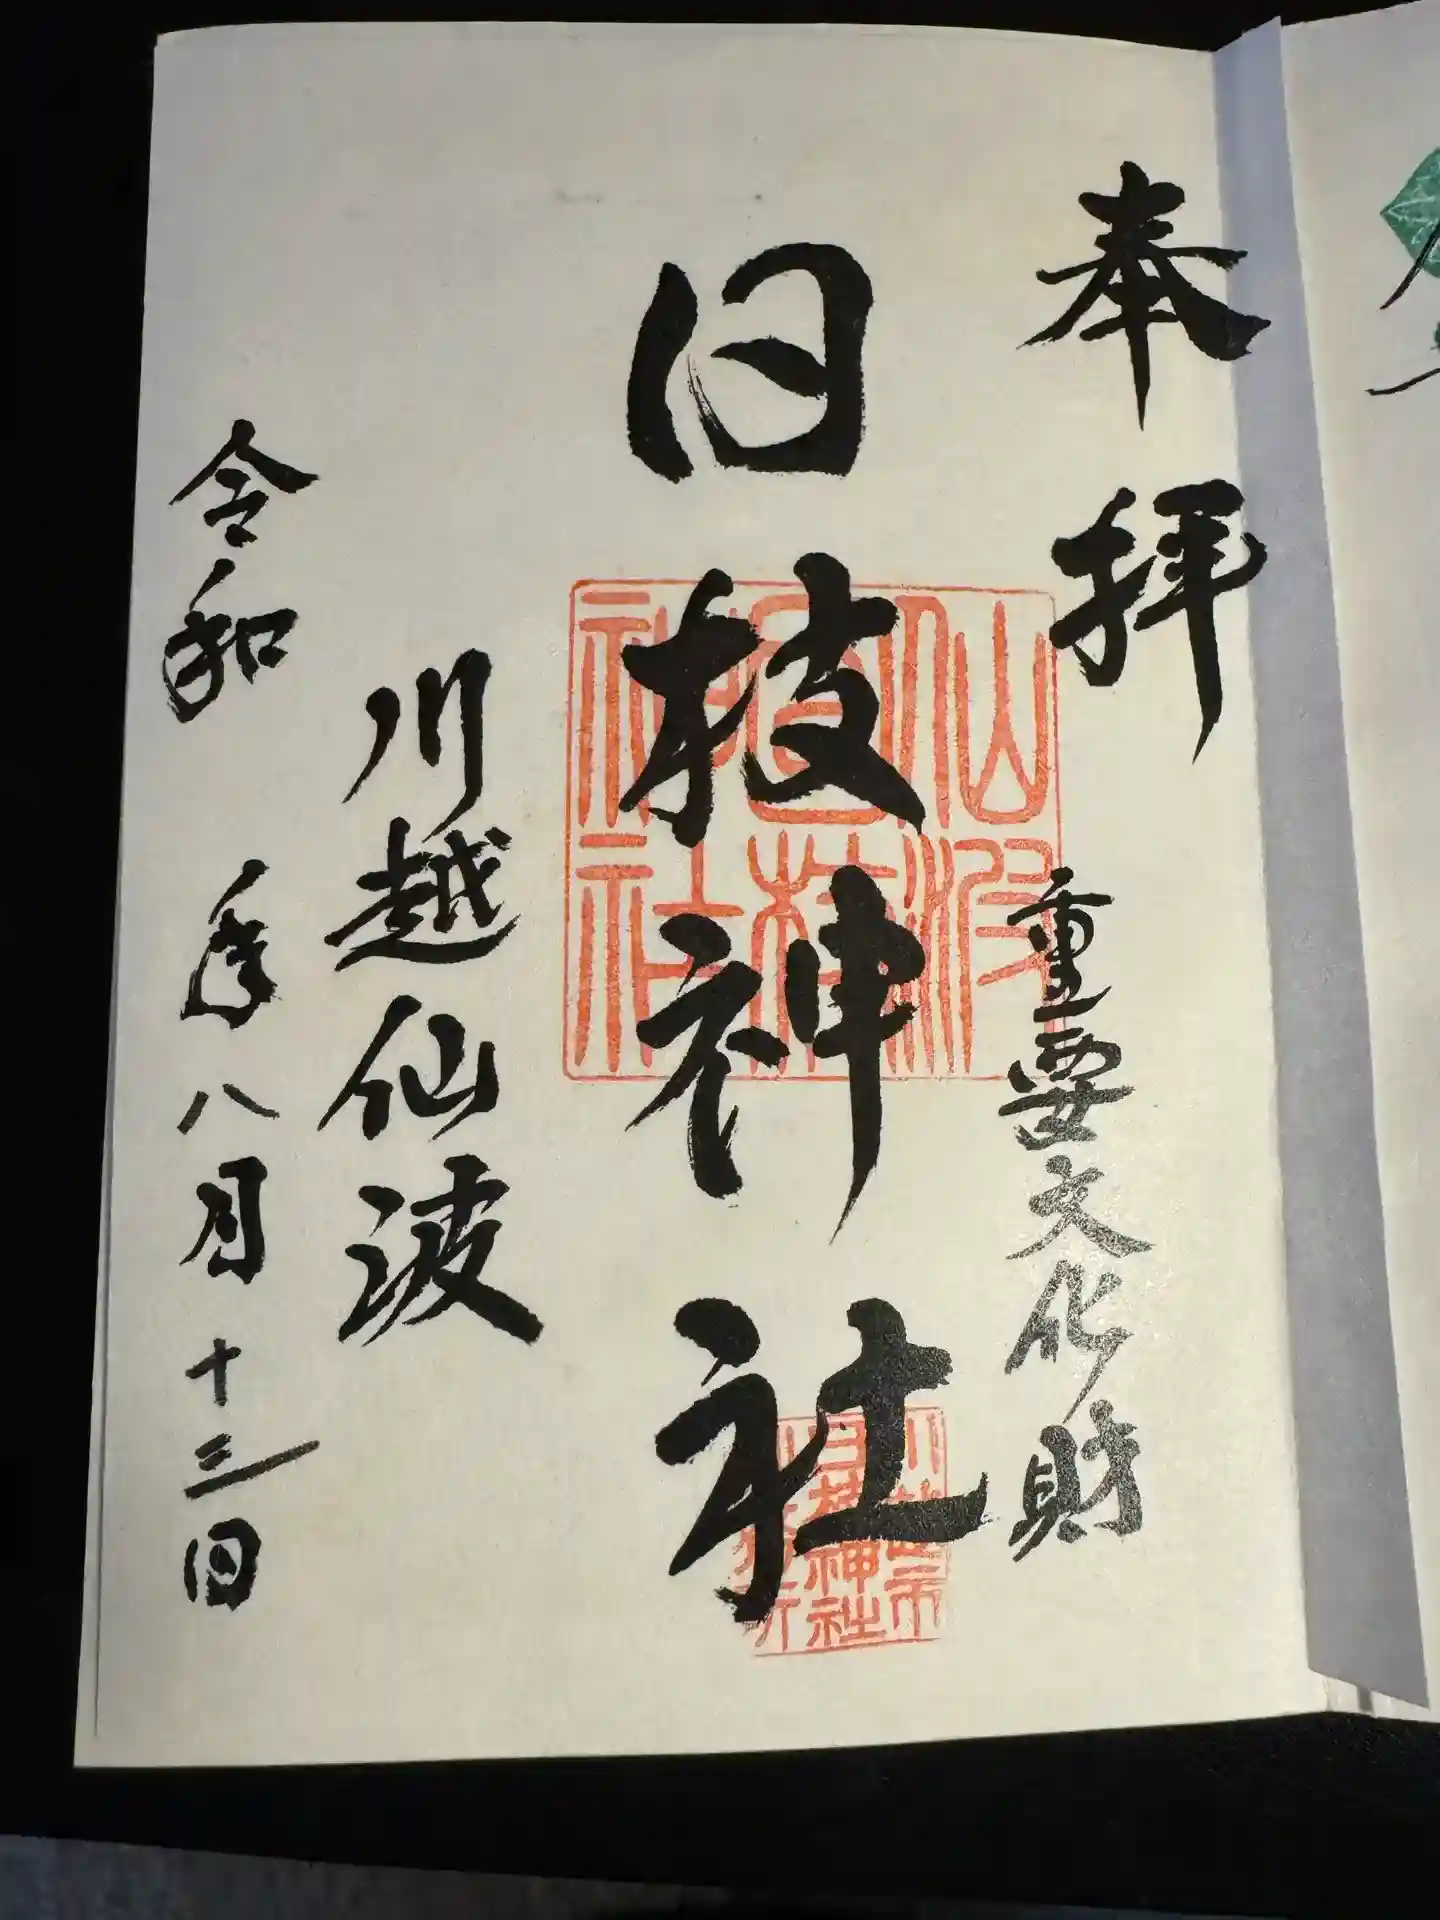 奉拝
重要文化財
日枝神社
仙波
日枝
神社
川越市
日枝神社
川越仙波
令和 年八月十三日